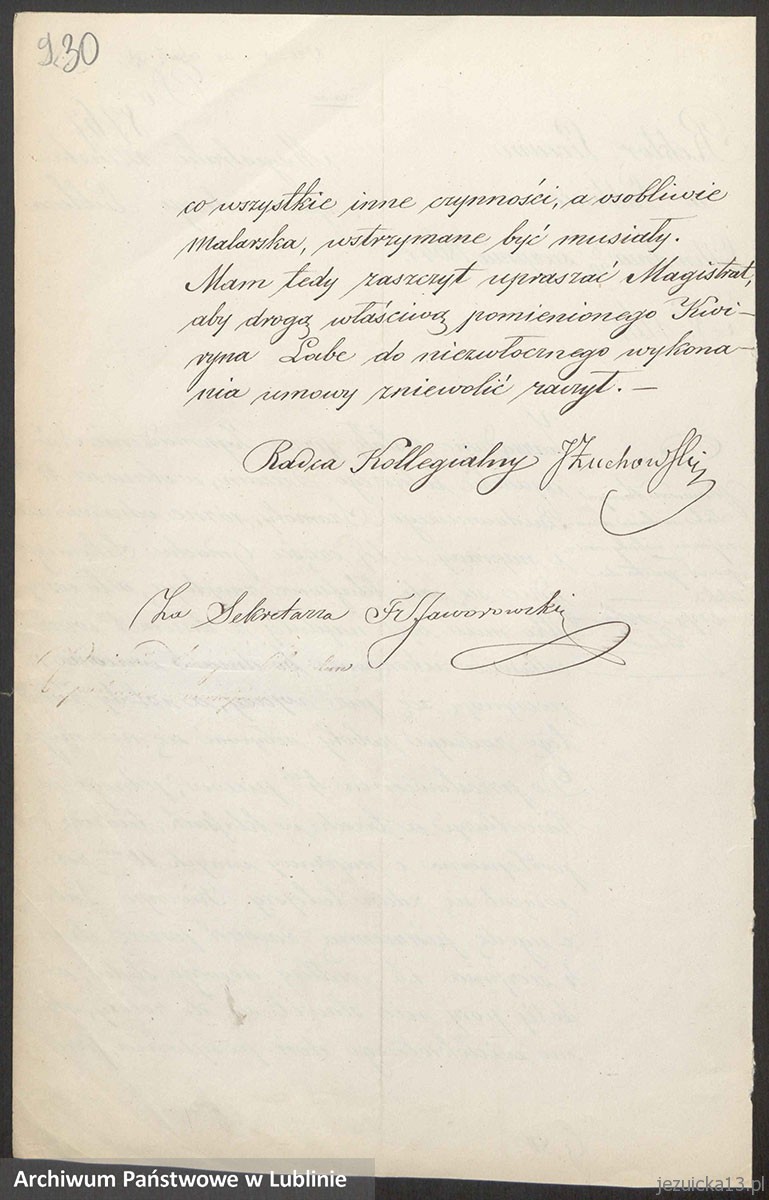 930
co wszystkie inne czynności, a osobliwie
Malarska, wstrzymane być musiały.
Mam tedy zaszczyt upraszać Magistrat,
aby drogą właściwą pomienionego Kwi-
ryna Labe do niezwłocznego wykona-
nia umowy zniewolić raczył. –
Radca Kollegialny JŻuchowski
Za Sekretarza Fr Jaworowski
Archiwum Państwowe w Lublinie
jezuicka13.pl